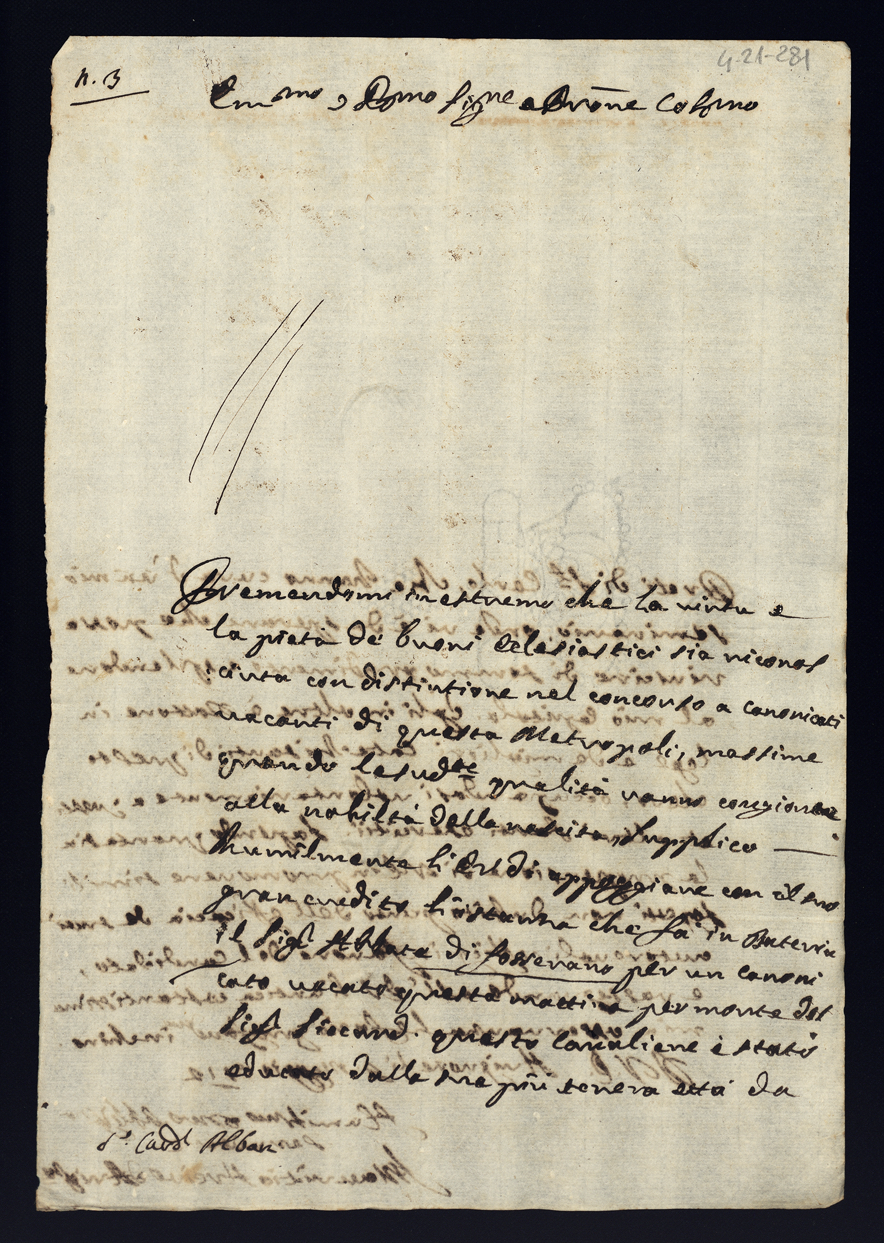 n. 3
4-21-281
Em.mo e Rmo Sig.re e Prōne Colmo
Premendomi in estremo che la virtu e
la pietà de buoni Eclesiastici sia riconos
ciuta con distintione nel concorso a canonicati
vacanti di questa Metropoli, massime
quando le sud.te qualità vanno congionte
alla nobiltà della nascita, supplico
humilmente di appoggiare con il suo
gran credito l'istanza che fà in Dateria
il Sig.r Abbate di Fosserano per un canoni
cato vacato questa mattina per morte del
Sig.r questo Cavaliere è stato
educato dalla sua piu tenera età da
S.r Card.l Alban